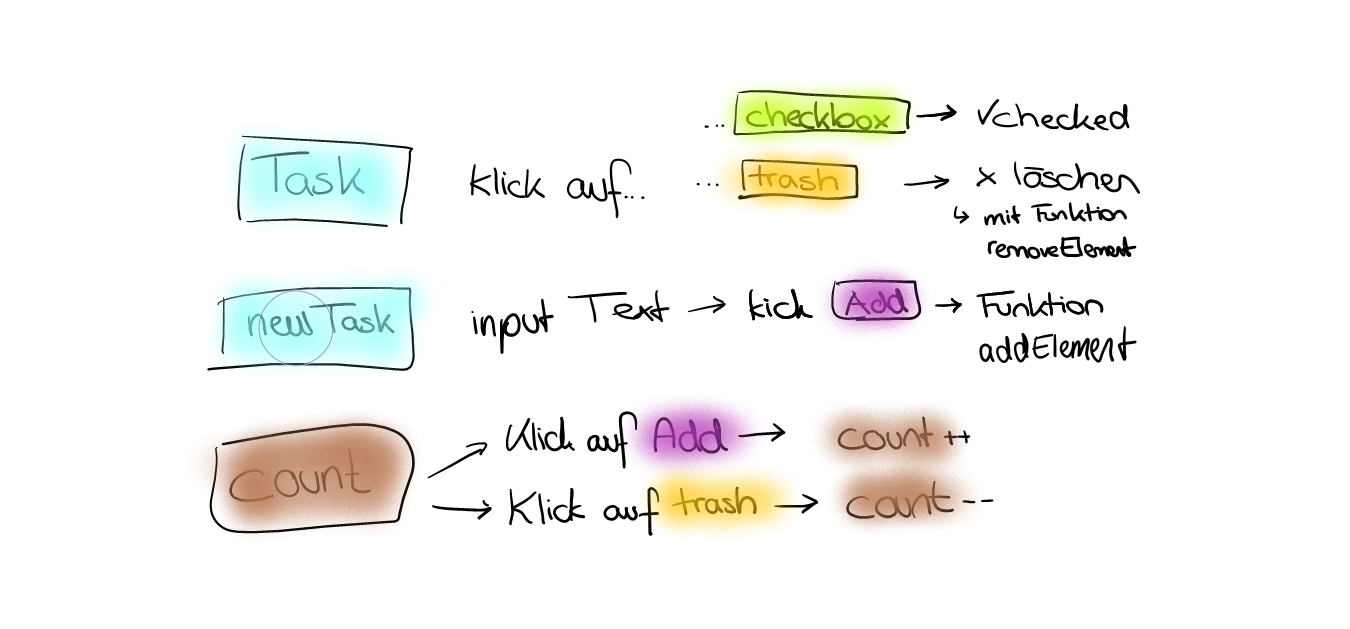 ... checkbox → ✓checked
Task Klick auf... ... trash → x löschen
↳ mit Funktion
removeElement
newTask input Text → kick Add → Funktion
addElement
count → Klick auf Add → count ++
→ Klick auf trash → count --